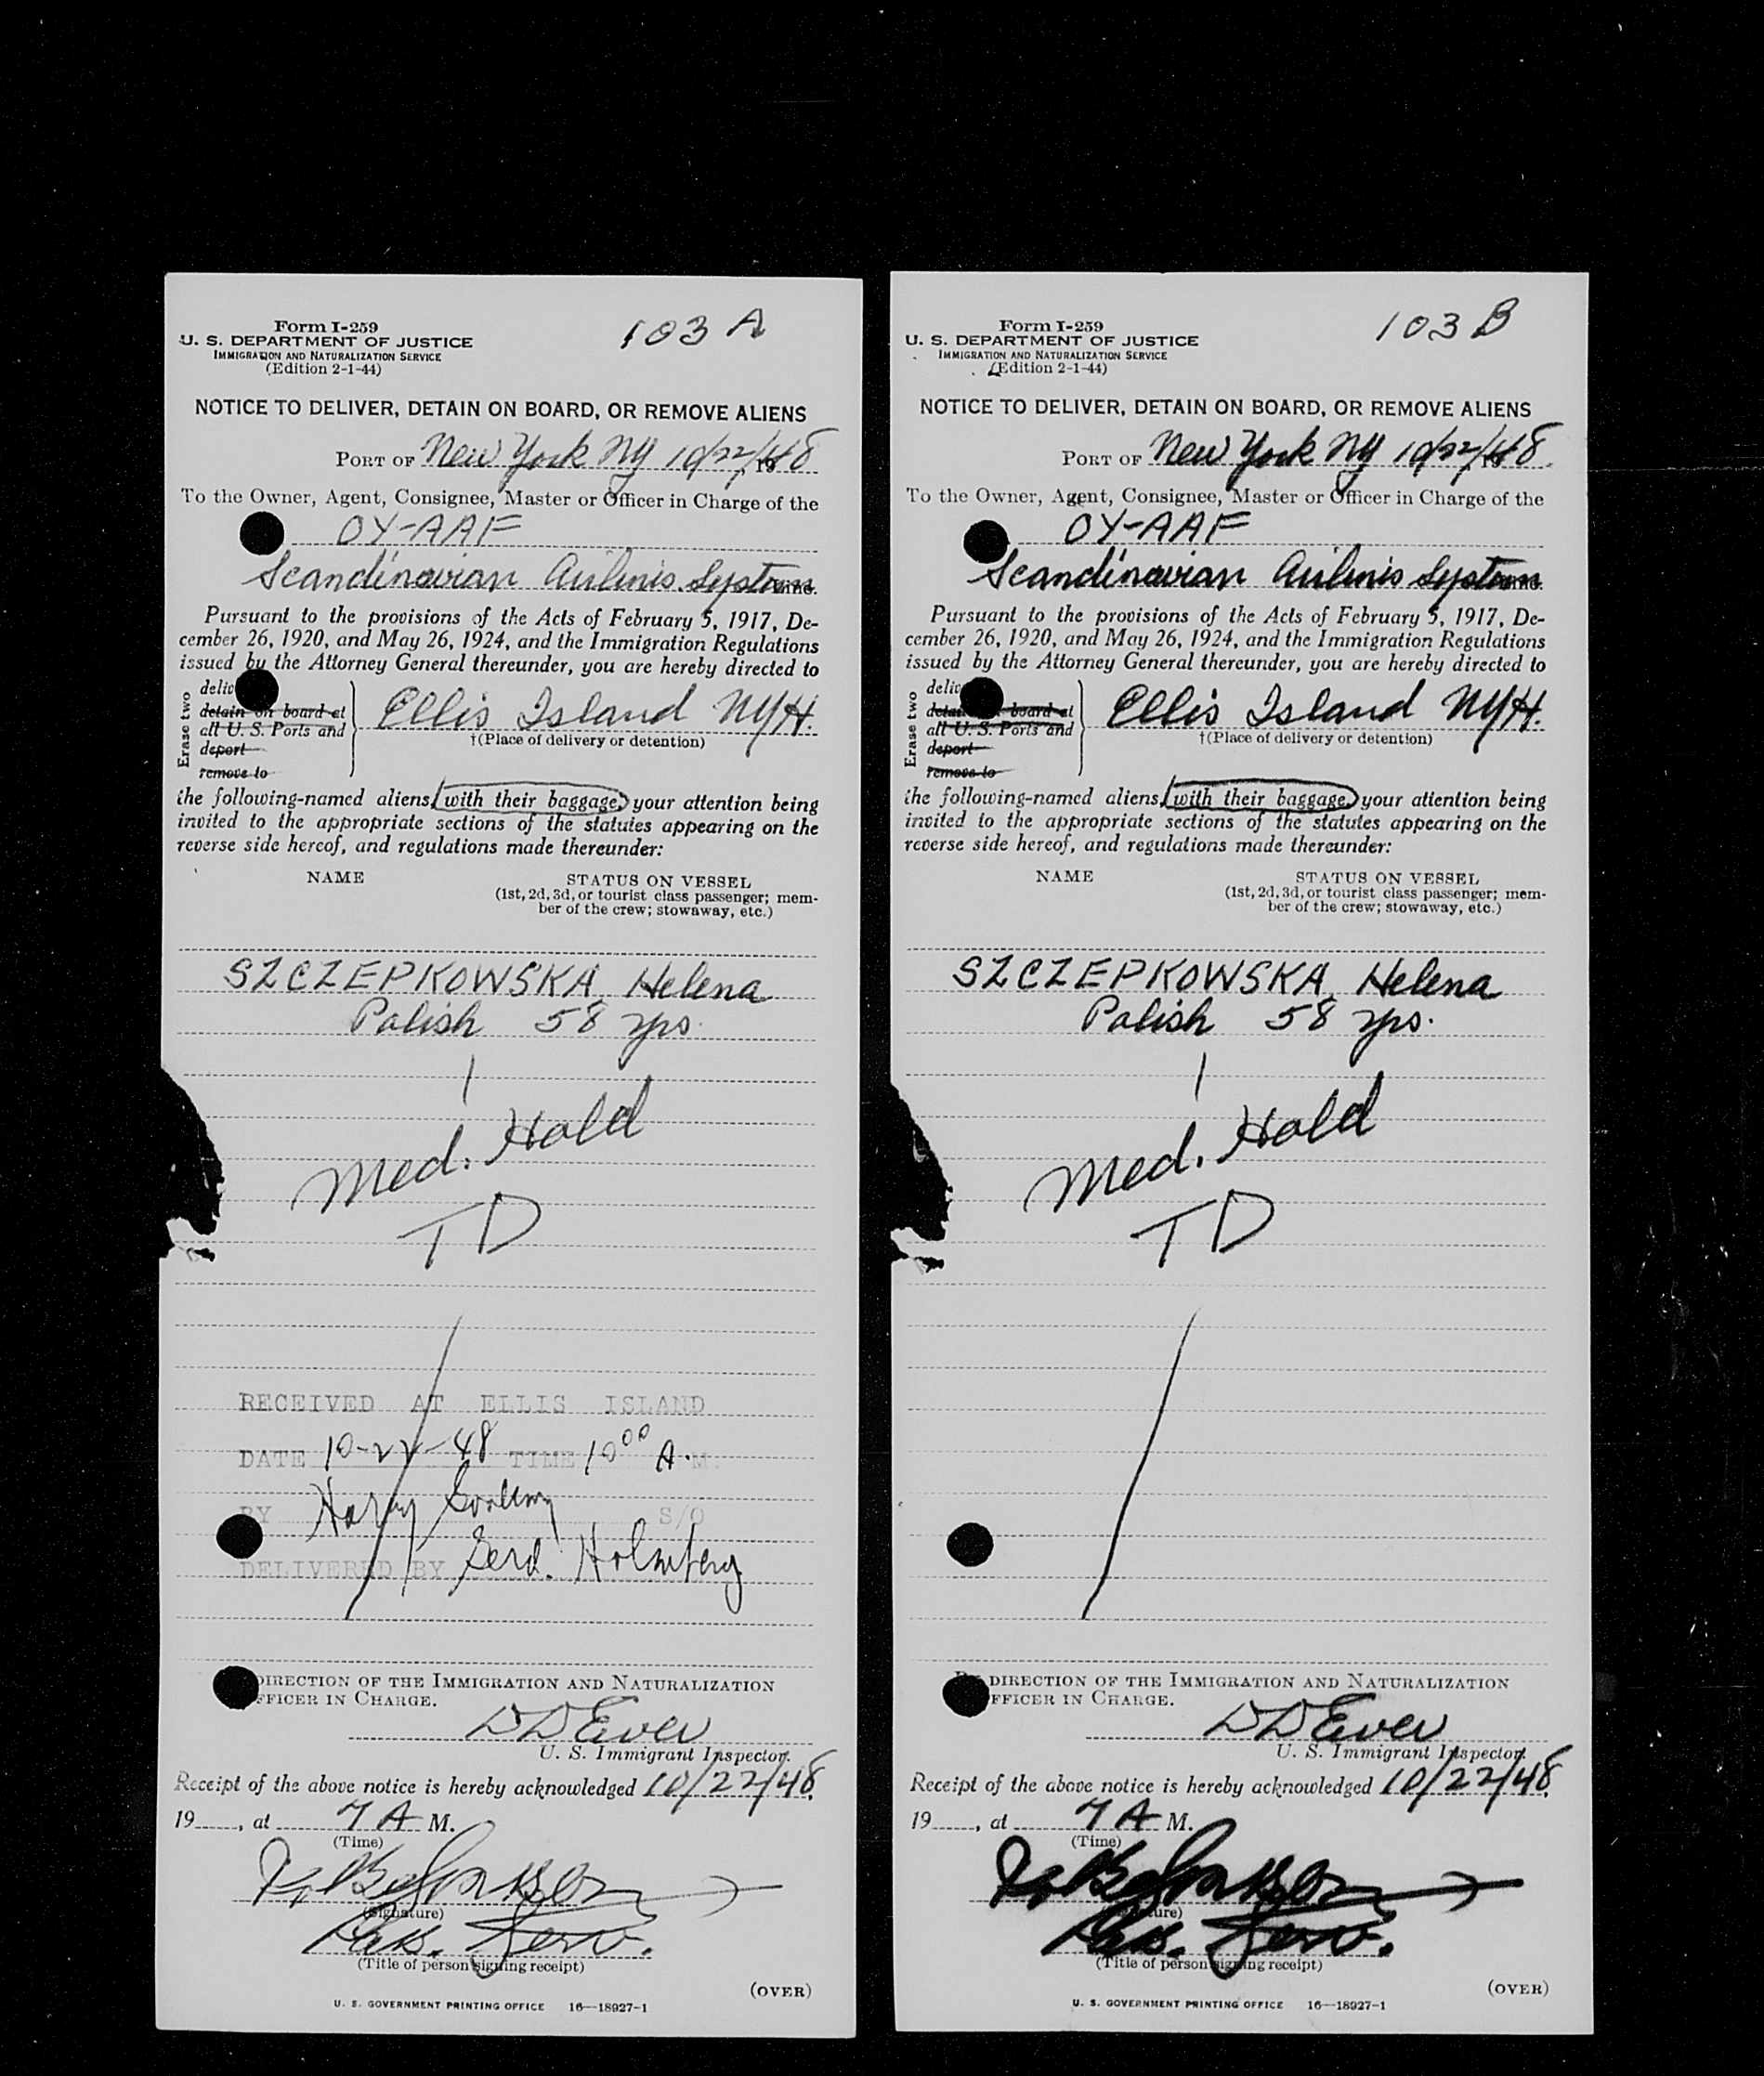 Form I-259
U. S. DEPARTMENT OF JUSTICE
IMMIGRATION AND NATURALIZATION SERVICE
(Edition 2-1-44)
103 A
NOTICE TO DELIVER, DETAIN ON BOARD, OR REMOVE ALIENS
PORT OF New York NY 10/22/48
To the Owner, Agent, Consignee, Master or Officer in Charge of the
OY-AAF
Scandinavian Airlines System
Pursuant to the provisions of the Acts of February 5, 1917, De-
cember 26, 1920, and May 26, 1924, and the Immigration Regulations
issued by the Attorney General thereunder, you are hereby directed to
Erase two
detain on board at
all U. S. Ports and
deport
remove to
Ellis Island NYH.
†(Place of delivery or detention)
the following-named aliens, with their baggage, your attention being
invited to the appropriate sections of the statutes appearing on the
reverse side hereof, and regulations made thereunder:
NAME STATUS ON VESSEL
(1st, 2d, 3d, or tourist class passenger; mem-
ber of the crew; stowaway, etc.)
SZCZEPKOWSKA, Helena
Polish 58 yrs.
Med. Hold
TD
RECEIVED AT ELLIS ISLAND
DATE 10-22-48 TIME 10 00 A.M.
BY Harry S/O
DELIVERED BY Gerd. Holmberg
DIRECTION OF THE IMMIGRATION AND NATURALIZATION
FFICER IN CHARGE.
DD Ever
U. S. Immigrant Inspector.
Receipt of the above notice is hereby acknowledged 10/22/48,
19___, at 7 A M.
(Time)
(Signature)
Pas. Serv.
(Title of person signing receipt)
(OVER)
U. S. GOVERNMENT PRINTING OFFICE 16—18927-1
Form I-259
U. S. DEPARTMENT OF JUSTICE
IMMIGRATION AND NATURALIZATION SERVICE
(Edition 2-1-44)
103 B
NOTICE TO DELIVER, DETAIN ON BOARD, OR REMOVE ALIENS
PORT OF New York NY 10/22/48
To the Owner, Agent, Consignee, Master or Officer in Charge of the
OY-AAF
Scandinavian Airlines System
Pursuant to the provisions of the Acts of February 5, 1917, De-
cember 26, 1920, and May 26, 1924, and the Immigration Regulations
issued by the Attorney General thereunder, you are hereby directed to
Erase two
board at
all U. S. Ports and
deport
remove to
Ellis Island NYH.
†(Place of delivery or detention)
the following-named aliens, with their baggage, your attention being
invited to the appropriate sections of the statutes appearing on the
reverse side hereof, and regulations made thereunder:
NAME STATUS ON VESSEL
(1st, 2d, 3d, or tourist class passenger; mem-
ber of the crew; stowaway, etc.)
SZCZEPKOWSKA, Helena
Polish 58 yrs.
Med. Hold
TD
DIRECTION OF THE IMMIGRATION AND NATURALIZATION
FFICER IN CHARGE.
DD Ever
U. S. Immigrant Inspector.
Receipt of the above notice is hereby acknowledged 10/22/48,
19___, at 7 A M.
(Time)
Pas. Serv.
(Title of person signing receipt)
(OVER)
U. S. GOVERNMENT PRINTING OFFICE 16—18927-1